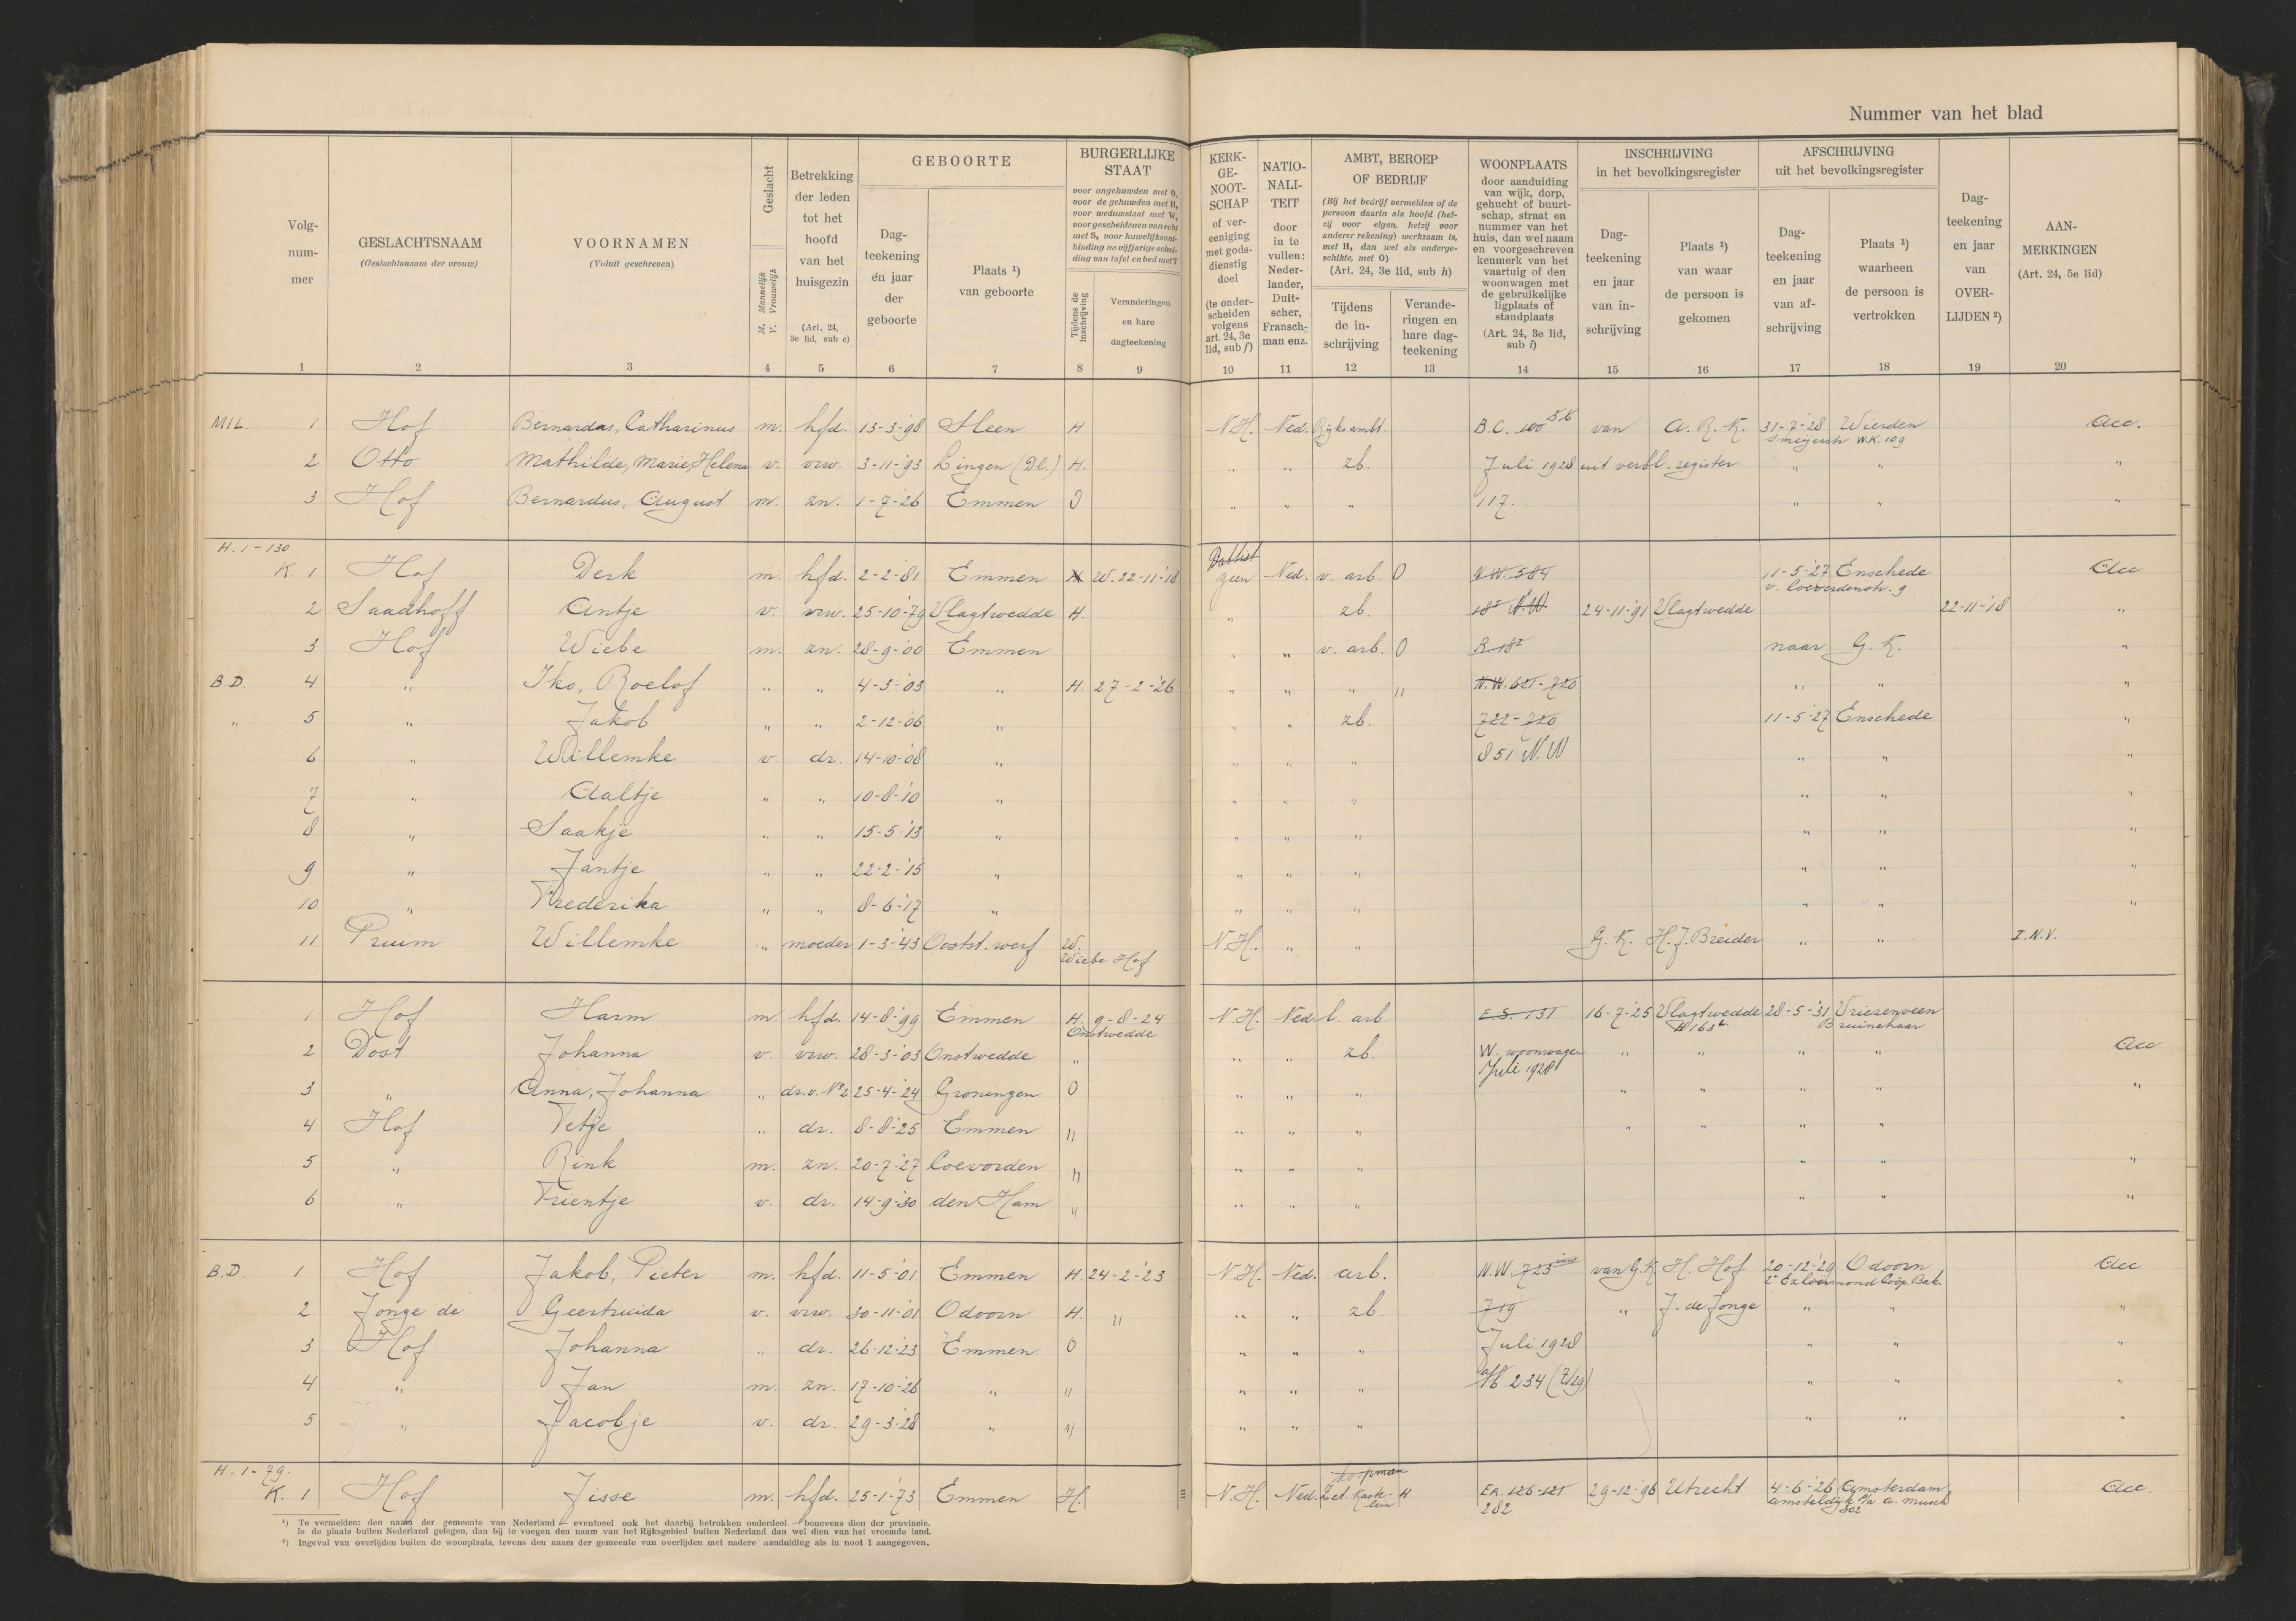 Nummer van het blad
Volg-
num-
mer
GESLACHTSNAAM
(Geslachtsnaam der vrouw)
VOORNAMEN
(Voluit geschreven)
Geslacht
M. Mannelijk
V. Vrouwelijk
Betrekking
der leden
tot het
hoofd
van het
huisgezin
(Art. 24,
3e lid, sub c)
GEBOORTE
Dag-
teekening
en jaar
der
geboorte
Plaats ¹)
van geboorte
BURGERLIJKE
STAAT
voor ongehuwden met O,
voor de gehuwden met H,
voor weduwstaat met W,
voor gescheidenen van echt
met S, voor huwelijksont-
binding na vijfjarige schei-
ding van tafel en bed met T
Tijdens de
inschrijving
Veranderingen
en hare
dagteekening
KERK-
GE-
NOOT-
SCHAP
of ver-
eeniging
met gods-
dienstig
doel
(te onder-
scheiden
volgens
art. 24, 3e
lid, sub f)
NATIO-
NALI-
TEIT
door
in te
vullen:
Neder-
lander,
Duit-
scher,
Fransch-
man enz.
AMBT, BEROEP
OF BEDRIJF
(Bij het bedrijf vermelden of de
persoon daarin als hoofd (het-
zij voor eigen, hetzij voor
anderer rekening) werkzaam is,
met H, dan wel als onderge-
schikte, met O)
(Art. 24, 3e lid, sub h)
Tijdens
de in-
schrijving
Verande-
ringen en
hare dag-
teekening
WOONPLAATS
door aanduiding
van wijk, dorp,
gehucht of buurt-
schap, straat en
nummer van het
huis, dan wel naam
en voorgeschreven
kenmerk van het
vaartuig of den
woonwagen met
de gebruikelijke
ligplaats of
standplaats
(Art. 24, 3e lid,
sub i)
INSCHRIJVING
in het bevolkingsregister
Dag-
teekening
en jaar
van in-
schrijving
Plaats ¹)
van waar
de persoon is
gekomen
AFSCHRIJVING
uit het bevolkingsregister
Dag-
teekening
en jaar
van af-
schrijving
Plaats ¹)
waarheen
de persoon is
vertrokken
Dag-
teekening
en jaar
van
OVER-
LIJDEN ²)
AAN-
MERKINGEN
(Art. 24, 5e lid)
1 2 3 4 5 6 7 8 9 10 11 12 13 14 15 16 17 18 19 20
MIL. 1 Hof Bernardus, Catharinus m. hfd. 13-3-'98 Sleen H N.H. Ned. Rijksambt. B.C. 100 van A.R.K. 31-7-'28 Wierden Acc.
W.K. 109
2 Otto Mathilde, Marie, Helena v. vrw. 3-11-'93 Lingen (Dl.) H. " " zb. Juli 1928 uit verbl. register " " "
3 Hof Bernardus, August m. zn. 1-7-'26 Emmen O " " " 117. " " "
H. 1-130
K. 1 Hof Derk m. hfd. 2-2-'81 Emmen H W. 22-11-'18 Babtist geen Ned. v. arb. O N.W. 584 11-5-'27 Enschede Acc
v. Coeverdenstr. 9
2 Saadhoff Antje v. vrw. 25-10-'79 Vlagtwedde H. " zb. 24-11-'91 Vlagtwedde 22-11-'18 "
3 Hof Wiebe m. zn. 28-9-'00 Emmen " " v. arb. O naar G.K. "
B.D. 4 " Iko, Roelof " " 4-3-'03 " H. 27-2-'26 " " " " N.W. 621-720 " " "
" 5 " Jakob " " 2-12-'06 " " " zb. 722-720 11-5-'27 Enschede "
6 " Willemke v. dr. 14-10-'08 " " " " 851 N.W " " "
7 " Aaltje " " 10-8-'10 " " " " " " "
8 " Saakje " " 15-5-'13 " " " " " " "
9 " Jantje " " 22-2-'15 " " " " " " "
10 " Frederika " " 8-6-'17 " " " " " " "
11 Pruim Willemke " moeder 1-3-'43 Ooststwerf W. N.H. " " G.K. H.J. Breider " " I.N.V.
Wiebe Hof
1 Hof Harm m. hfd. 14-8-'99 Emmen H. 9-8-24 N.H. Ned l. arb. E.S. 131 16-7-'25 Vlagtwedde 28-5-'31 Vriezenveen
Onstwedde Bruinehaar
2 Dost Johanna v. vrw. 28-3-'03 Onstwedde " " " zb. W. woonwagen " " " " Acc
Juli 1928
3 " Anna, Johanna " dr. v. Nº 2 25-4-'24 Groningen O " " " " " " " "
4 Hof Tetje " dr. 8-8-'25 Emmen " " " " " " " "
5 " Rink m. zn. 20-7-'27 Coevorden " " " " " " "
6 " Trientje v. dr. 14-9-'30 den Ham " " " " " " "
B.D. 1 Hof Jakob, Pieter m. hfd. 11-5-'01 Emmen H. 24-2-'23 N.H. Ned. arb. N.W. 723 van G.K. H. Hof 20-12-'29 Odoorn Acc
2e Exloërmond Coöp. Bak.
2 Jonge de Geertruida v. vrw. 30-11-'01 Odoorn H. " " " zb. 719 " J. de Jonge " " "
3 Hof Johanna " dr. 26-12-'23 Emmen O " " " Juli 1928 " " "
4 " Jan m. zn. 17-10-'26 " " " " " 234 (7/29) " " "
5 " Jacobje v. dr. 29-3-'28 " " " " " " " "
H. 1-79.
koopman
K. 1 Hof Jisse m. hfd. 25-1-'73 Emmen H. N.H. Ned. Zet. Kastelein H E.R. 126-121 29-12-'96 Utrecht 4-6-'26 Amsterdam Acc.
282 Amsteldijk 302 p/a A. Munch
¹) Te vermelden: den naam der gemeente van Nederland — eventueel ook het daarbij betrokken onderdeel — benevens dien der provincie.
Is de plaats buiten Nederland gelegen, dan bij te voegen den naam van het Rijksgebied buiten Nederland dan wel dien van het vreemde land.
²) Ingeval van overlijden buiten de woonplaats, tevens den naam der gemeente van overlijden met nadere aanduiding als in noot 1 aangegeven.